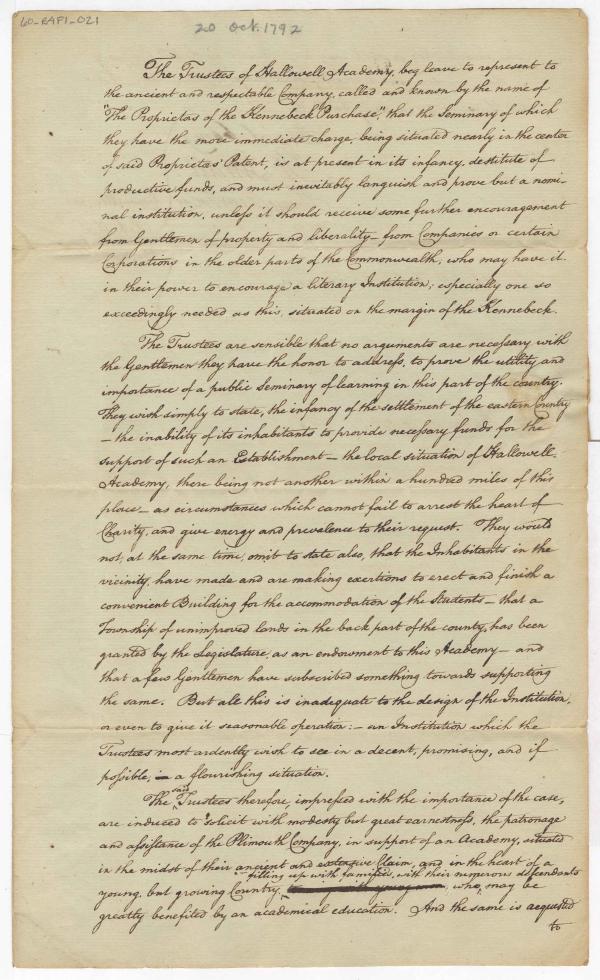 60-R4F1-021
20 Oct. 1792
The Trustees of Hallowell Academy, beg leave to represent to
the ancient and respectable Company, called and known by the name of
"The Proprietors of the Kennebeck Purchase," that the Seminary of which
they have the more immediate charge, being situated nearly in the center
of said Proprietors' Patent, is at present in its infancy, destitute of
productive funds, and must inevitably languish and prove but a nomi-
nal institution, unless it should receive some further encouragement
from Gentlemen of property and liberality – from Companies or certain
Corporations in the older parts of the Commonwealth, who may have it
in their power to encourage a literary Institution; especially one so
exceedingly needed as this, situated on the margin of the Kennebeck.
The Trustees are sensible that no arguments are necessary with
the Gentlemen they have the honor to address, to prove the utility and
importance of a public Seminary of learning in this part of the country.
They wish simply to state, the infancy of the settlement of the eastern Country
– the inability of its inhabitants to provide necessary funds for the
support of such an Establishment – the local situation of Hallowell
Academy, there being not another within a hundred miles of this
place – as circumstances which cannot fail to arrest the heart of
Charity, and give energy and prevalence to their request. They would
not, at the same time, omit to state also, that the Inhabitants in the
vicinity, have made and are making exertions to erect and finish a
convenient Building for the accommodation of the Students – that a
Township of unimproved lands in the back part of the county, has been
granted by the Legislature, as an endowment to this Academy – and
that a few Gentlemen have subscribed something towards supporting
the same. But all this is inadequate to the design of the Institution,
or even to give it seasonable operation: – an Institution which the
Trustees most ardently wish to see in a decent, promising, and if
possible, – a flourishing situation.
The said Trustees therefore, impressed with the importance of the case,
are induced to solicit with modesty but great earnestness, the patronage
and assistance of the Plimouth Company, in support of an Academy, situated
in the midst of their ancient and extensive Claim, and in the heart of a
young, but growing Country, filling up with families, with their numerous descendants
who, may be
greatly benefited by an academical education. And the same is requested
to